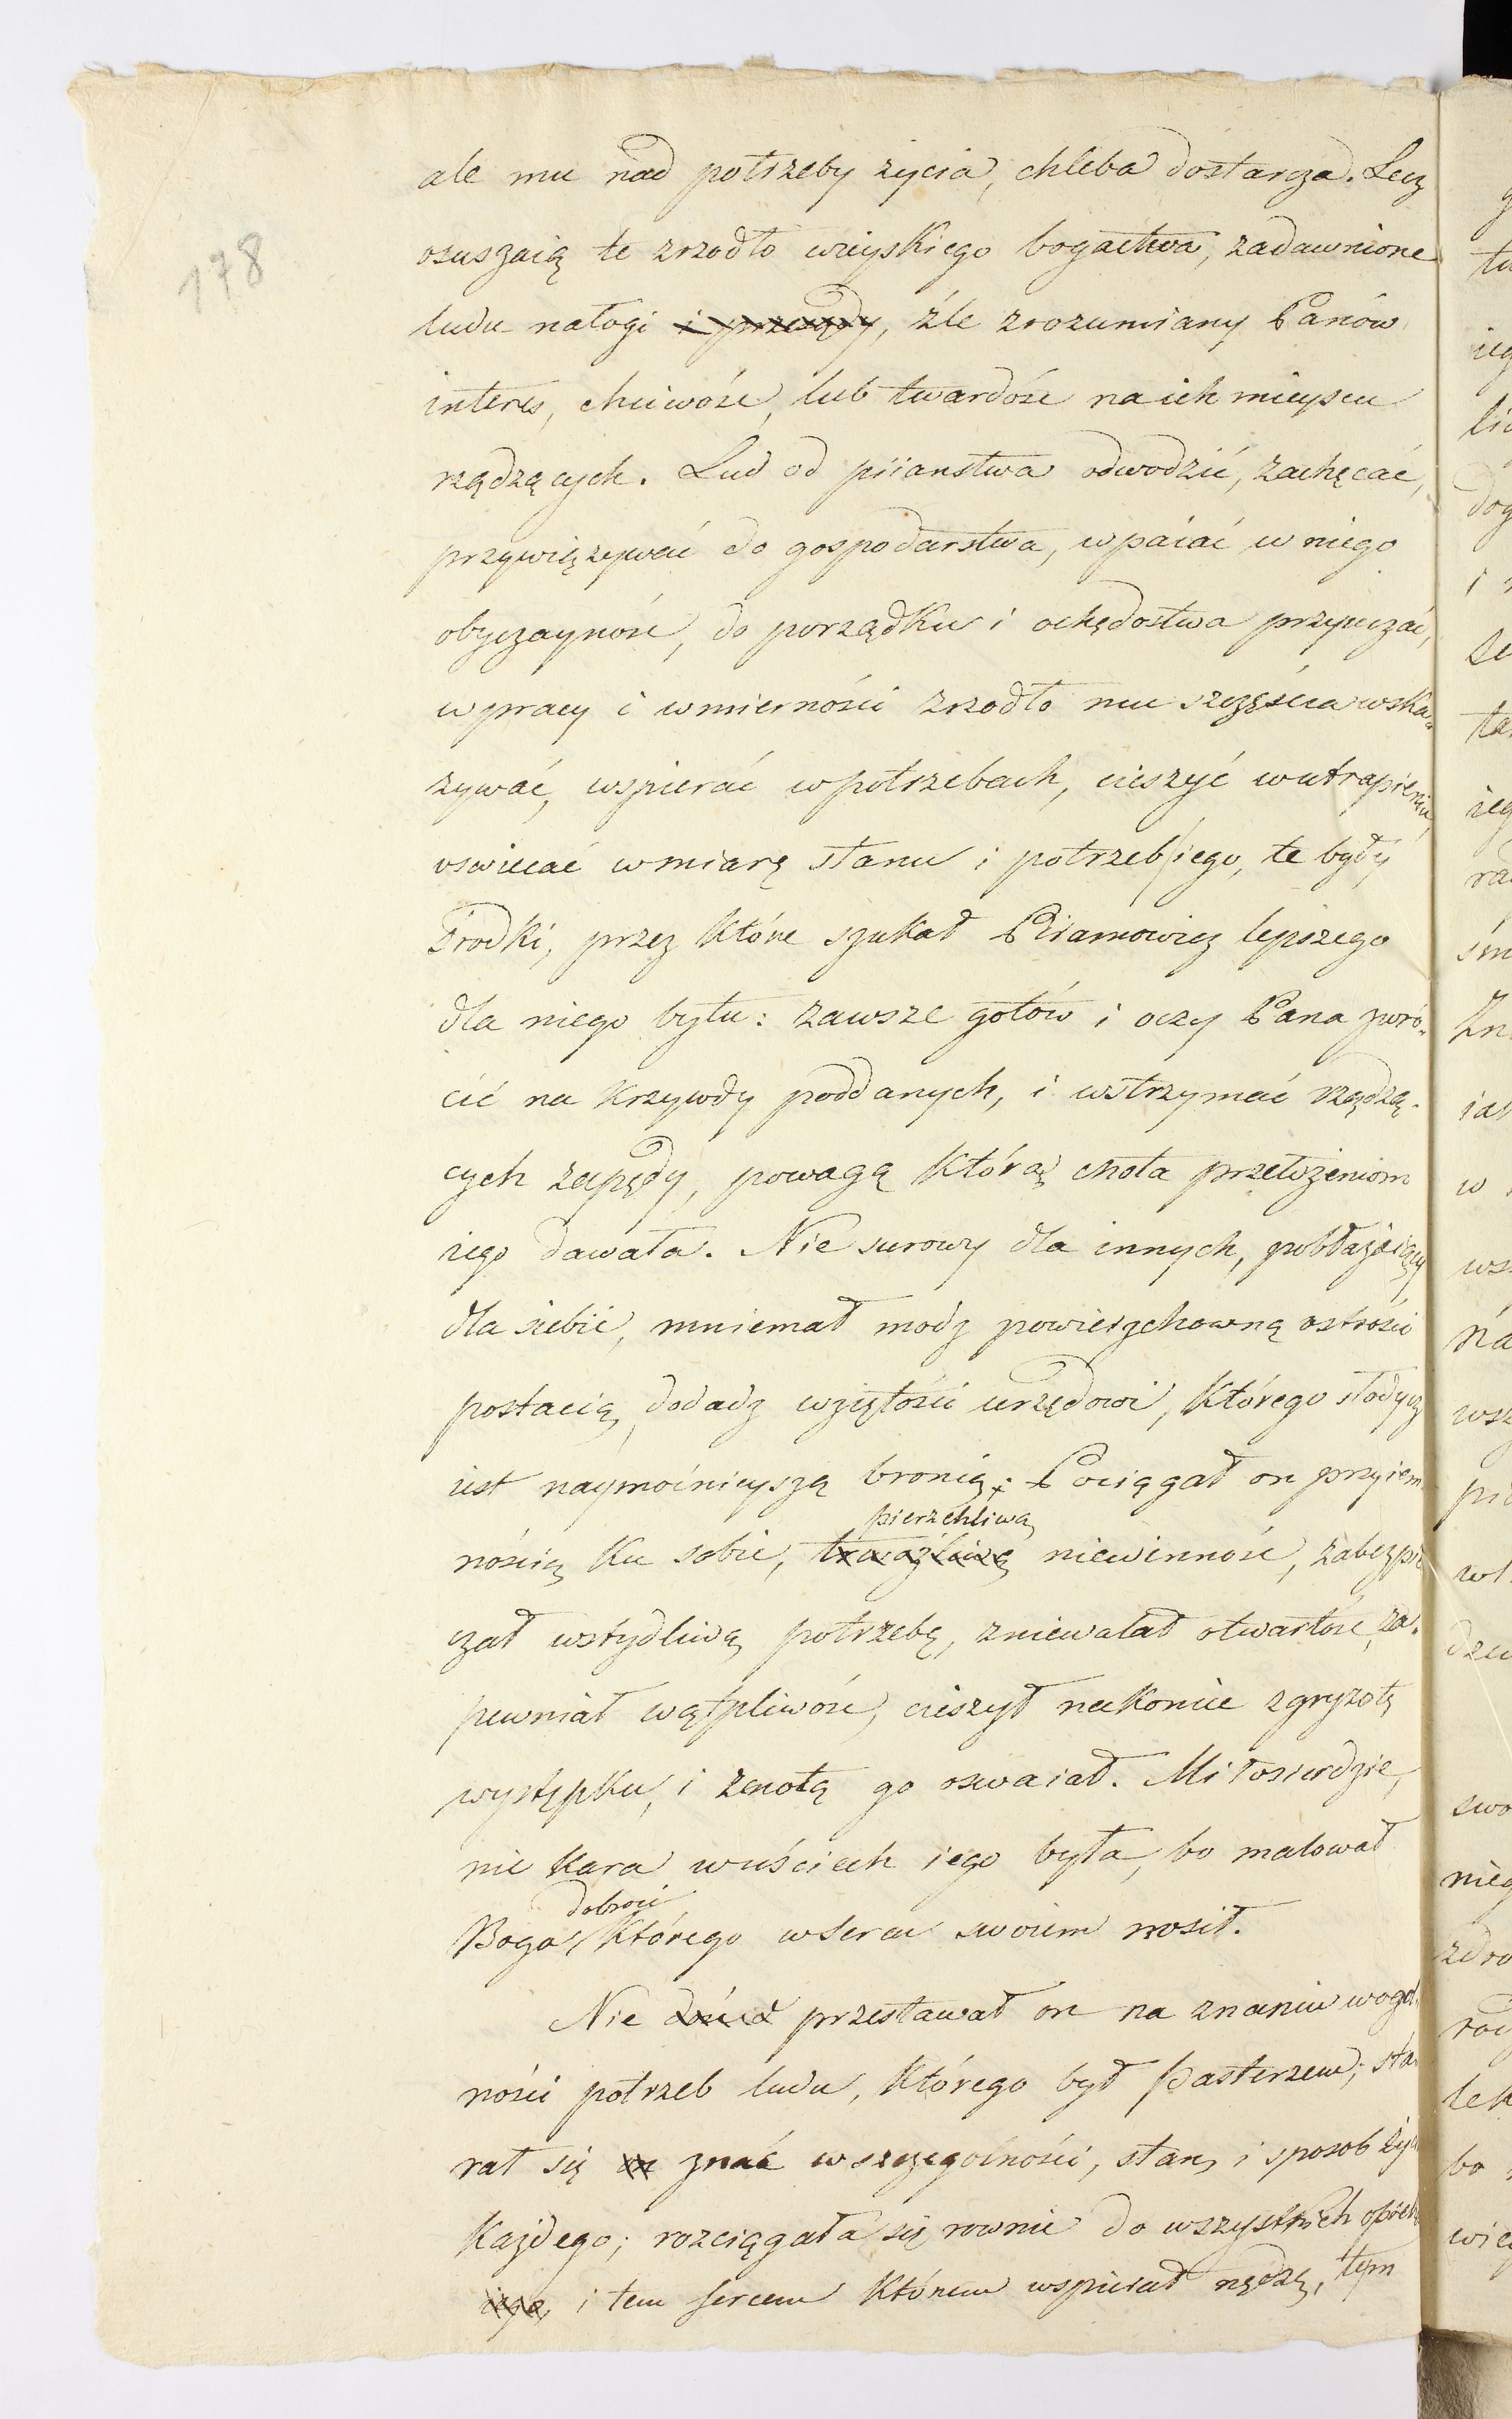 178
ale mu nad potrzeby życia, chleba dostarcza. Lecz
osuszaią te zrzodło wieyskiego bogactwa, zadawnione
ludu nałogi i przesądy, źle zrozumiany Panów
interes, chciwość, lub twardość na ich mieyscu
rządzących. Lud od piianstwa odwodzić, zachęcać,
przywięzywać do gospodarstwa, wpaiać w niego
obyczayność, do porządku i ochędostwa przyuczać,
w pracy i w mierności zrzodło mu szczęścia wska-
zywać, wspierać w potrzebach, cieszyć w utrapieniu,
oswiecać w miarę stanu i potrzeb iego, te były
Środki, przez które szukał Piramowicz lepszego
dla niego bytu: zawsze gotów i oczy Pana zwró-
cić na krzywdy poddanych, i wstrzymać rządzą-
cych zapędy, powagą którą cnota przełożeniom
iego dawała. Nie surowy dla innych, pobłażaiący
dla siebie, mniemał módz powierzchowną ostrości
postacią, dodadz wziętości urzędowi, którego słodycz
iest naymocnieyszą bronią; Pociągał on przyiem
pierzchliwą
nością ku sobie, niewinność, zabezpie
czał wstydliwą potrzebę, zniewalał otwartość, za-
pewniał wątpliwość, cieszył nakoniec zgryzotę
występku, i z cnotą go oswaiał. Miłosierdzie,
nie kara w uściech iego była, bo malował
dobroci
Boga, którego w sercu swoiem nosił.
Nie przestawał on na znaniu w ogól
ności potrzeb ludu, którego był Pasterzem; sta
rał się znać w szczególności, stan, i sposob życia
każdego; rozciągała się rownie do wszystkich opieka
iego, i tem sercem którem wspierał nędzę, tym